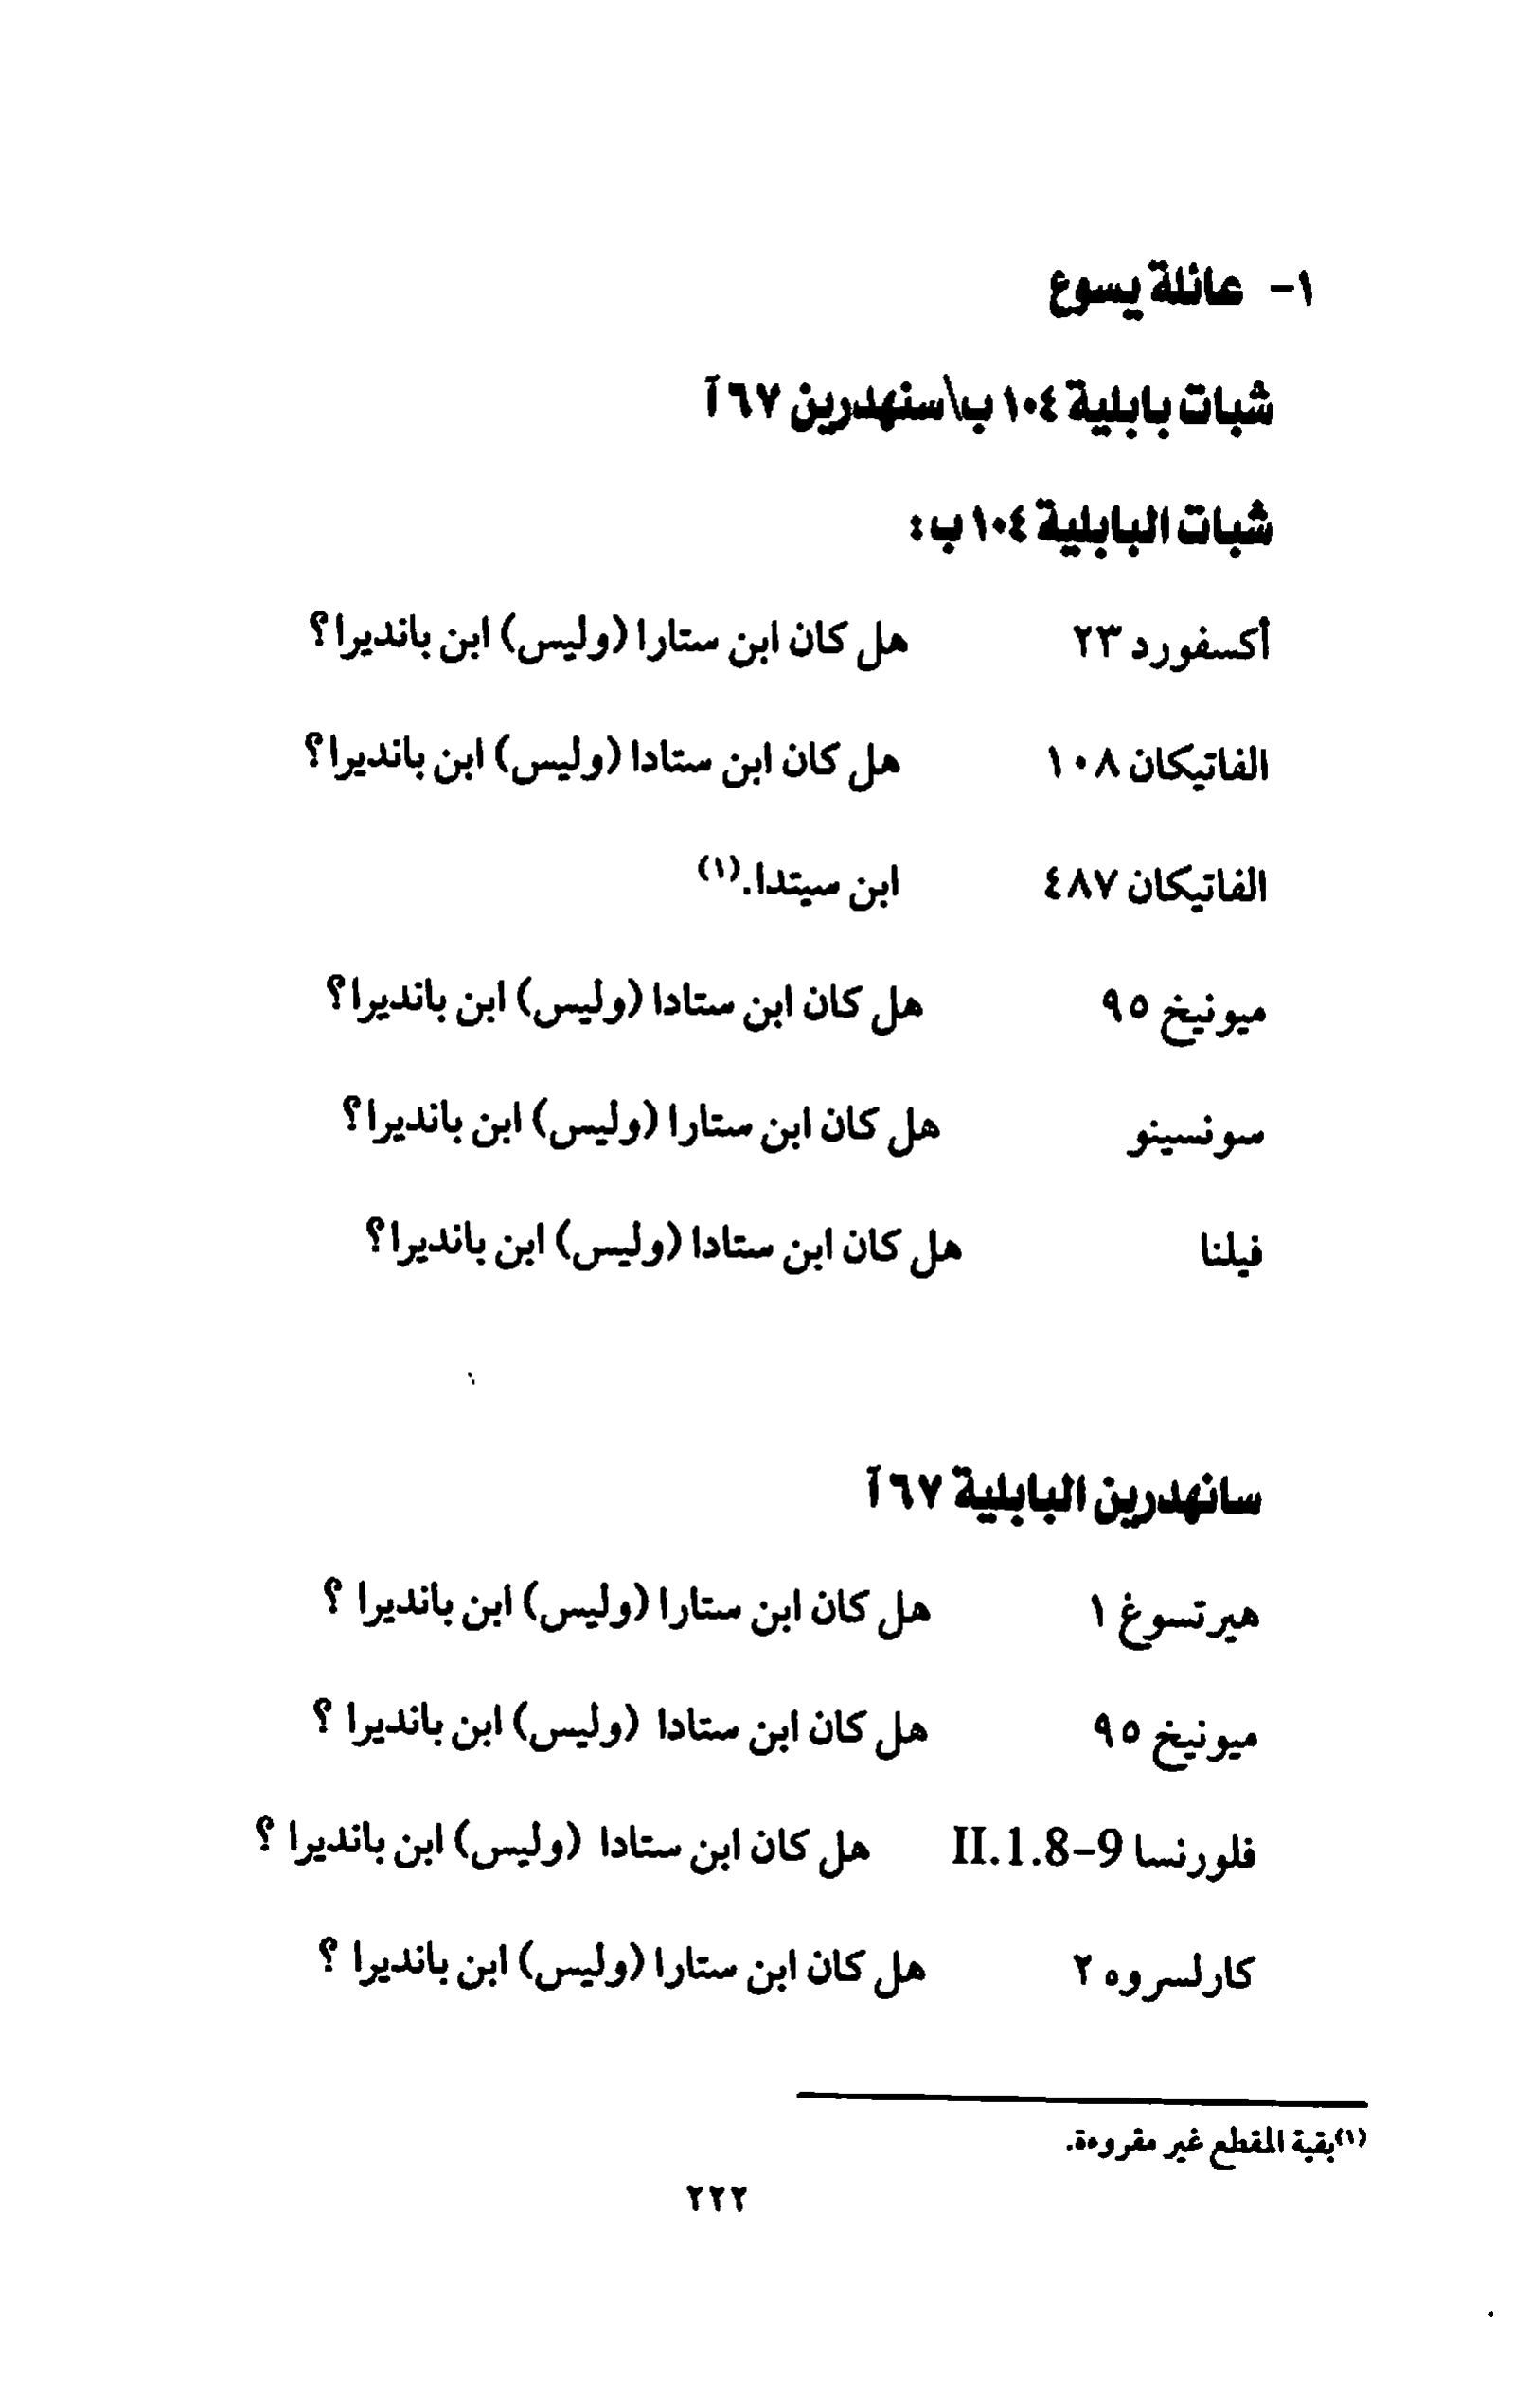 ١- عائلة يسوع
شبات بابلية ١٠٤ ب\سنهدرين ٦٧ آ
شبات البابلية ١٠٤ ب:
أكسفورد ٢٣ هل كان ابن ستارا (وليس) ابن بانديرا؟
الفاتيكان ١٠٨ هل كان ابن ستادا (وليس) ابن بانديرا؟
الفاتيكان ٤٨٧ ابن سيتدا.(١)
ميونيخ ٩٥ هل كان ابن ستادا (وليس) ابن بانديرا؟
سونسينو هل كان ابن ستارا (وليس) ابن بانديرا؟
فيلنا هل كان ابن ستادا (وليس) ابن بانديرا؟
سانهدرين البابلية ٦٧ آ
هيرتسوغ ١ هل كان ابن ستارا (وليس) ابن بانديرا ؟
ميونيخ ٩٥ هل كان ابن ستادا (وليس) ابن بانديرا ؟
فلورنسا II.1.8-9 هل كان ابن ستادا (وليس) ابن بانديرا ؟
كارلسروه ٢ هل كان ابن ستارا (وليس) ابن بانديرا ؟
(١)بقية المقطع غير مقروءة.
٢٢٢